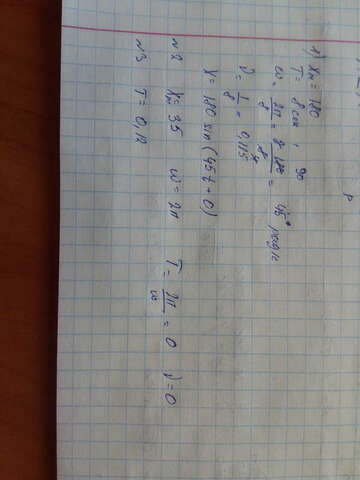 1) Xм = 180
T = 8 сек ; 90
ω = 2π/8 = 2·180/8 = 45° рад/с
ν = 1/8 = 0,125
X = 180 sin (45t + 0)
N2 Xм = 35 ω = 2π T = 2π/ω = 0 ν = 0
N3 T = 0,12